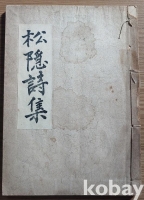 松隱詩集
kobay